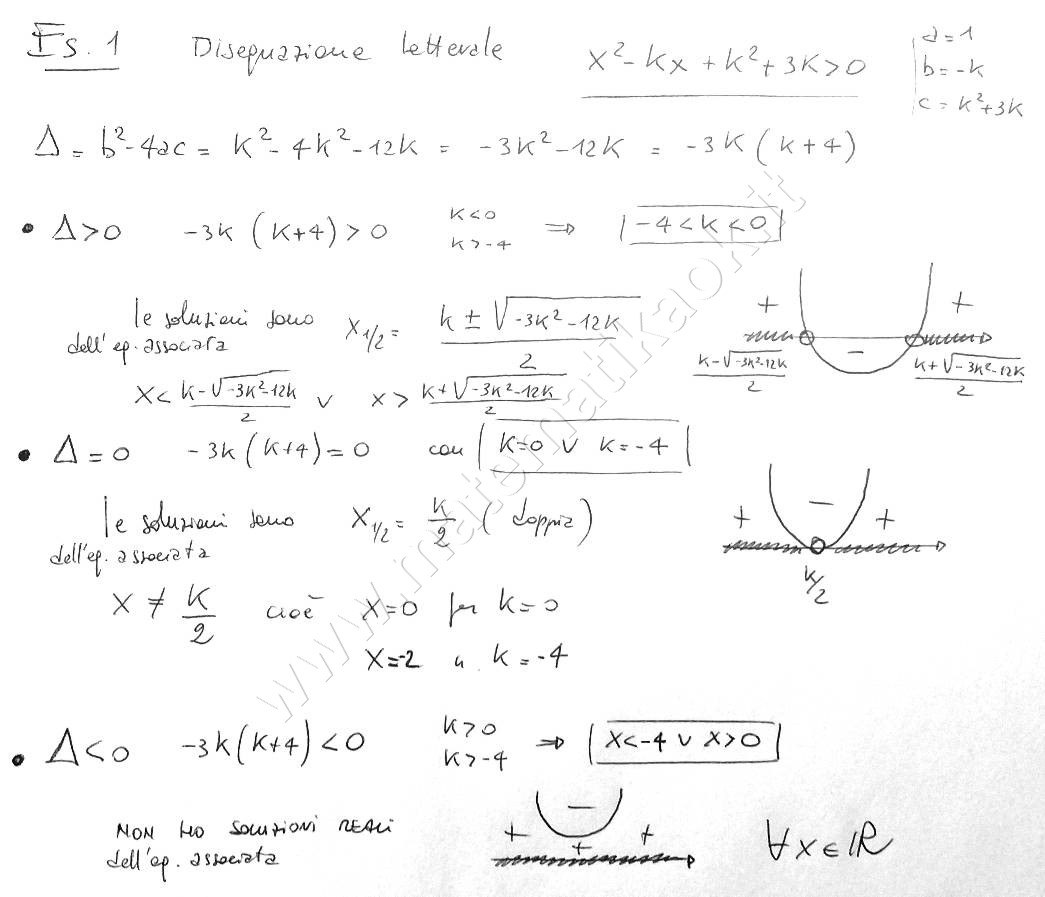 Es. 1 Disequazione letterale x²-kx+k²+3k>0
a=1
b=-k
c=k²+3k
Δ=b²-4ac=k²-4k²-12k=-3k²-12k=-3k(k+4)
• Δ>0 -3k(k+4)>0 k<0 k>-4 ⇒ -4<k<0
le soluzioni sono dell'eq. associata x1/2= (k±√(-3k²-12k))/2
+ - +
(k-√(-3k²-12k))/2 (k+√(-3k²-12k))/2
x<(k-√(-3k²-12k))/2 ∨ x>(k+√(-3k²-12k))/2
• Δ=0 -3k(k+4)=0 con k=0 ∨ k=-4
le soluzioni sono dell'eq. associata x1/2= k/2 (doppia)
+ - +
k/2
x≠k/2 cioè x=0 per k=0
x=-2 " k=-4
• Δ<0 -3k(k+4)<0 k>0 k>-4 ⇒ x<-4 ∨ x>0
NON HO SOLUZIONI REALI dell'eq. associata
+ - + +
∀x∈ℝ
www.matematikaok.it